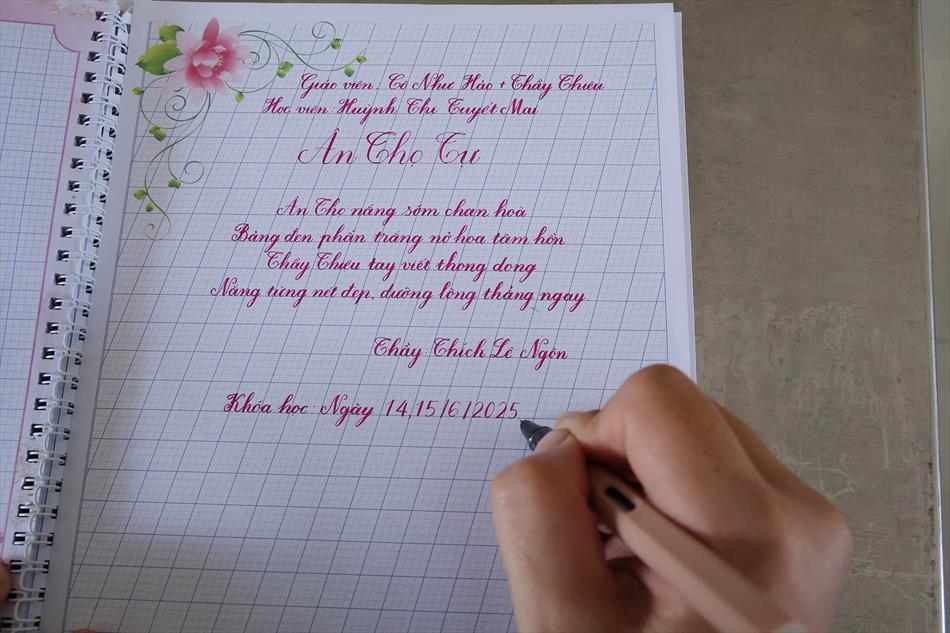 Giáo viên: Cô Như Hảo + Thầy Thiêu
Học viên: Huỳnh Thị Tuyết Mai
Ân Thọ Tự
Ân Thọ nắng sớm chan hoà
Bảng đen phấn trắng nở hoa tâm hồn
Thầy Thiêu tay viết thong dong
Nắng từng nét đẹp, dưỡng lòng thẳng ngay.
Thầy: Thích Lê Ngôn
Khóa học: Ngày 14,15/6/2025